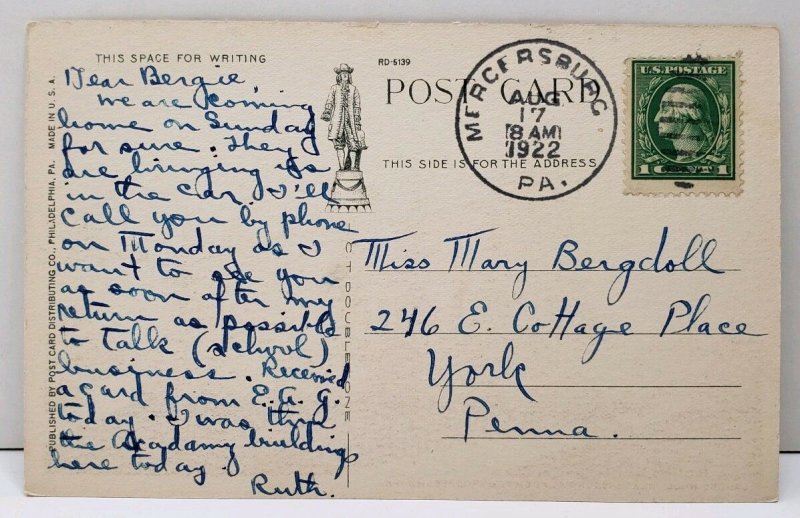 THIS SPACE FOR WRITING
Dear Bergie,
We are coming
home on Sunday
for sure. They
are bringing us
in the car. I'll
call you by phone
on Monday as I
want to see you
as soon after my
return as possible
to talk (school)
business. Received
a card from E.A.G.
today. I was thru
the Acadamy buildings
here today.
Ruth.
PUBLISHED BY POST CARD DISTRIBUTING CO., PHILADELPHIA, PA. MADE IN U.S.A.
RD-5139
POST CARD
THIS SIDE IS FOR THE ADDRESS
MERCERSBURG
AUG
17
8 AM
1922
PA.
U.S. POSTAGE
1 1
Miss Mary Bergdoll
246 E. Cottage Place
York
Penna.